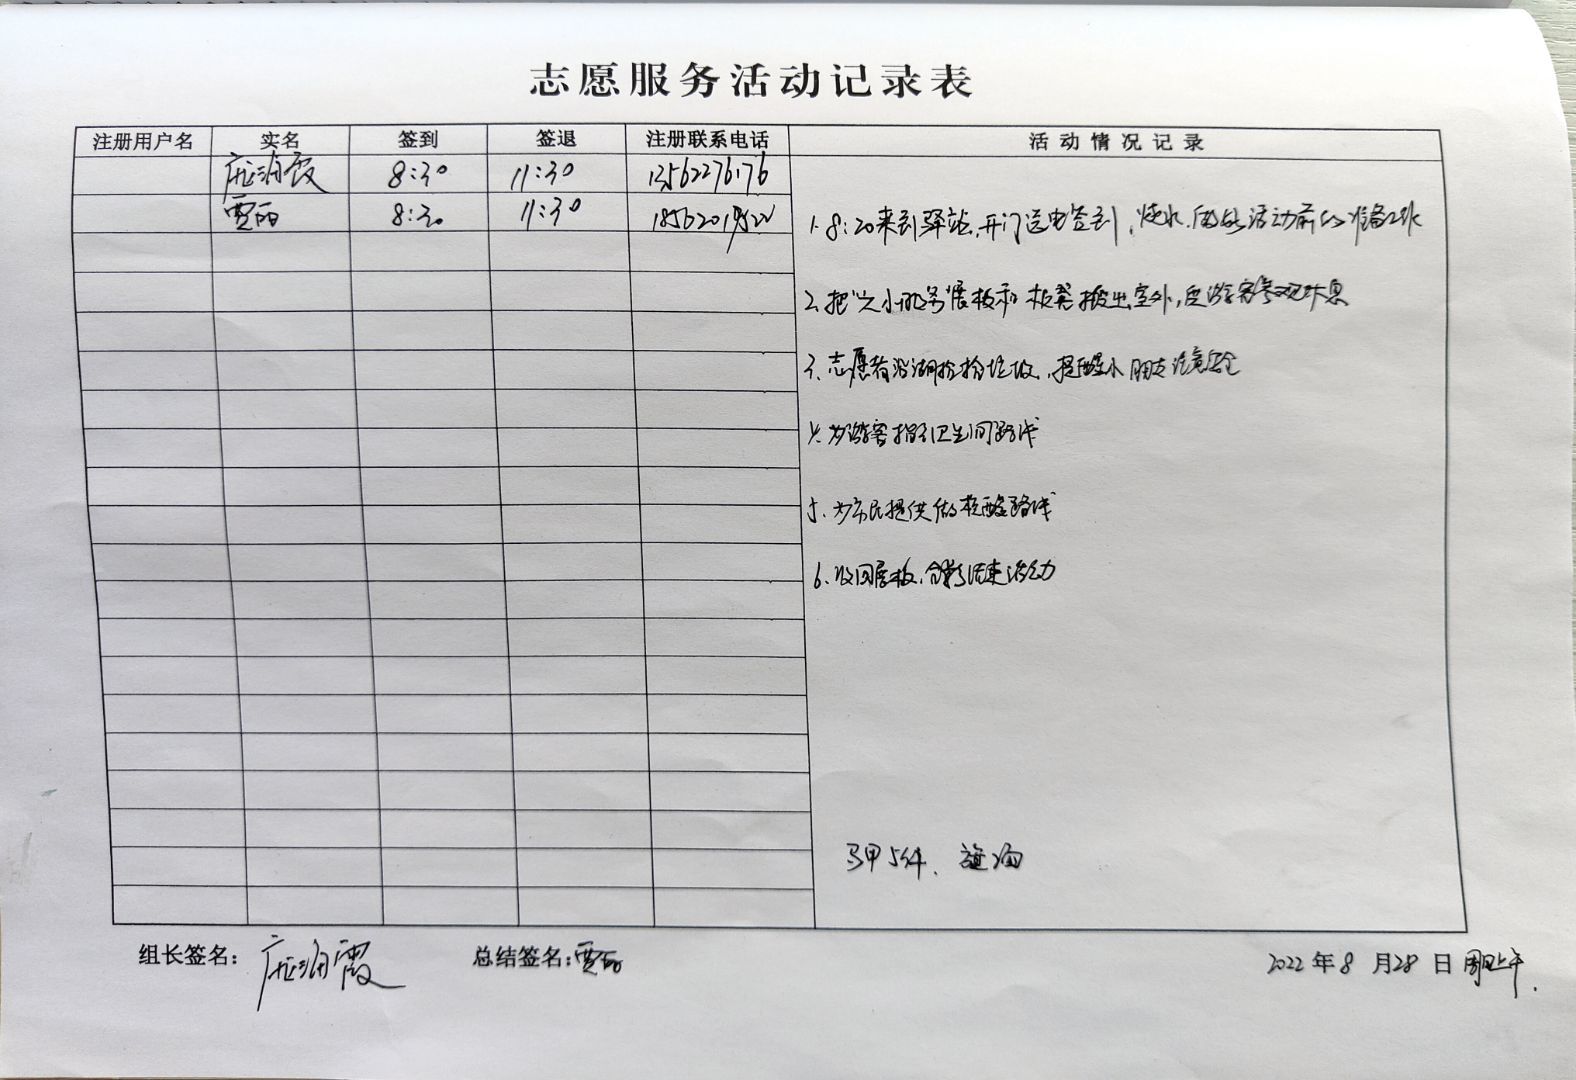 志愿服务活动记录表
注册用户名 实名 签到 签退 注册联系电话 活动情况记录
庞润霞 8:30 11:30 13562276176
贾丽 8:30 11:30 18562019522
1. 8:20来到驿站,开门送电签到,烧水,做好活动前的准备工作
2. 把"大小服务"展板和板凳搬出室外,应游客参观休息
3. 志愿者沿湖捡拾垃圾,提醒小朋友注意安全
4. 为游客指引卫生间路线
5. 为市民提供做核酸路线
6. 收回展板,合影结束活动
马甲5件、
组长签名: 庞润霞 总结签名:贾丽 2022年8月28日 周日上午.